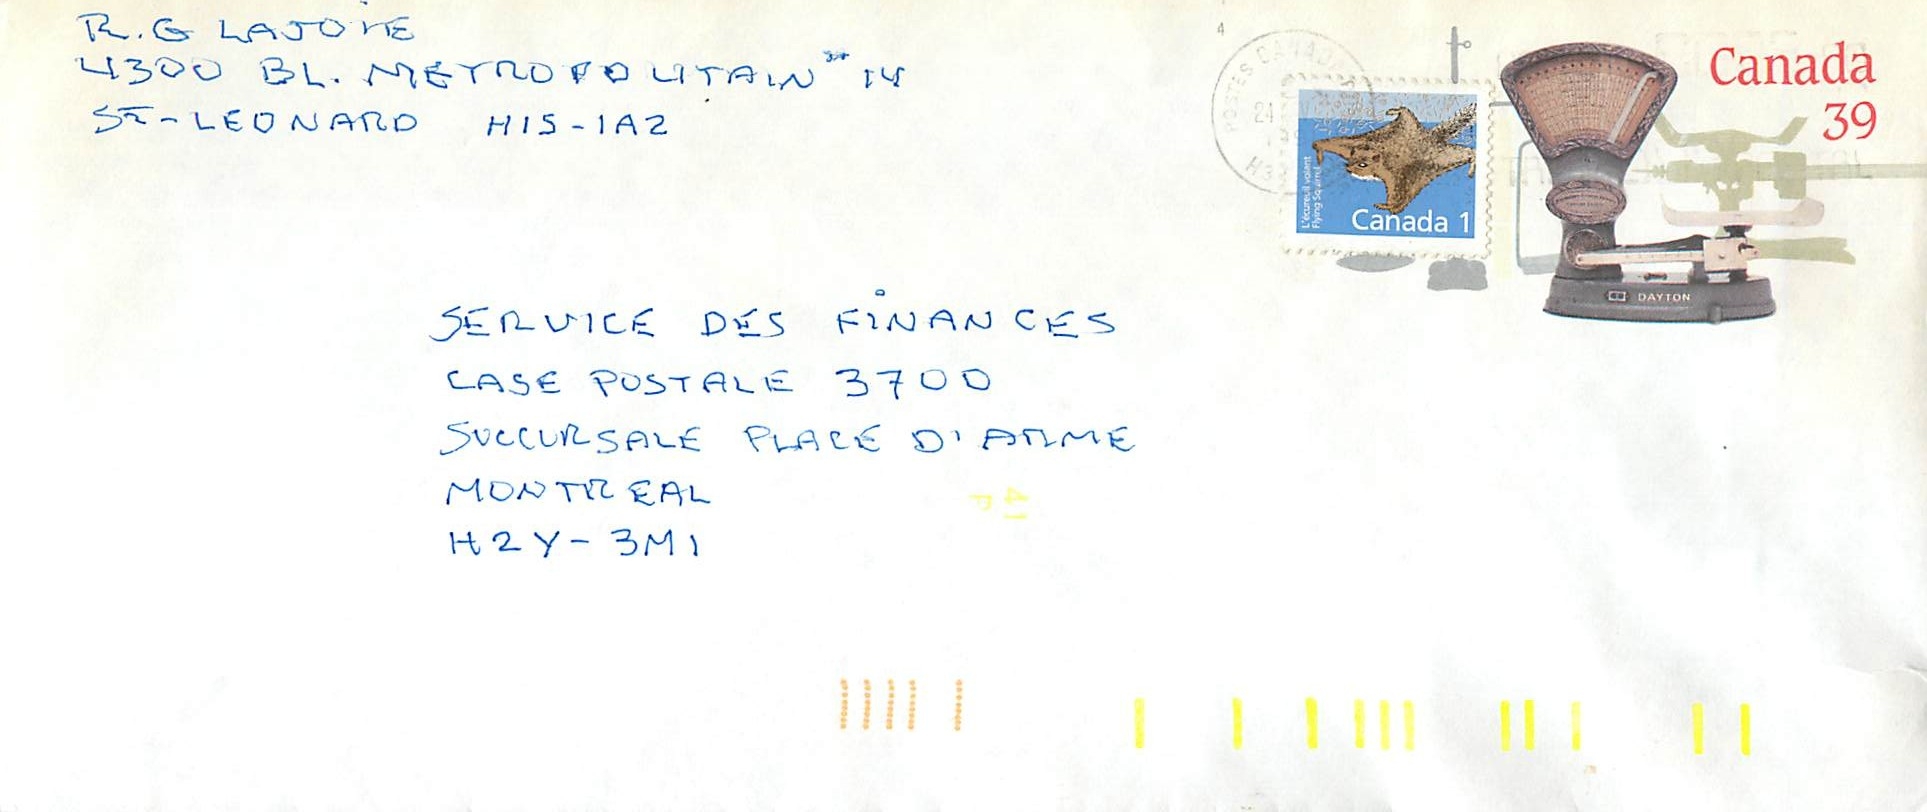 R.G LAJOIE
4300 BL. METROPOLITAIN # 14
ST-LEONARD H1S-1A2
4
POSTES CANADA
24
H3
L'écureuil volant
Flying Squirrel
Canada 1
Canada
39
DAYTON
SERVICE DES FINANCES
CASE POSTALE 3700
SUCCURSALE PLACE D'ARME
MONTREAL
H2Y-3M1